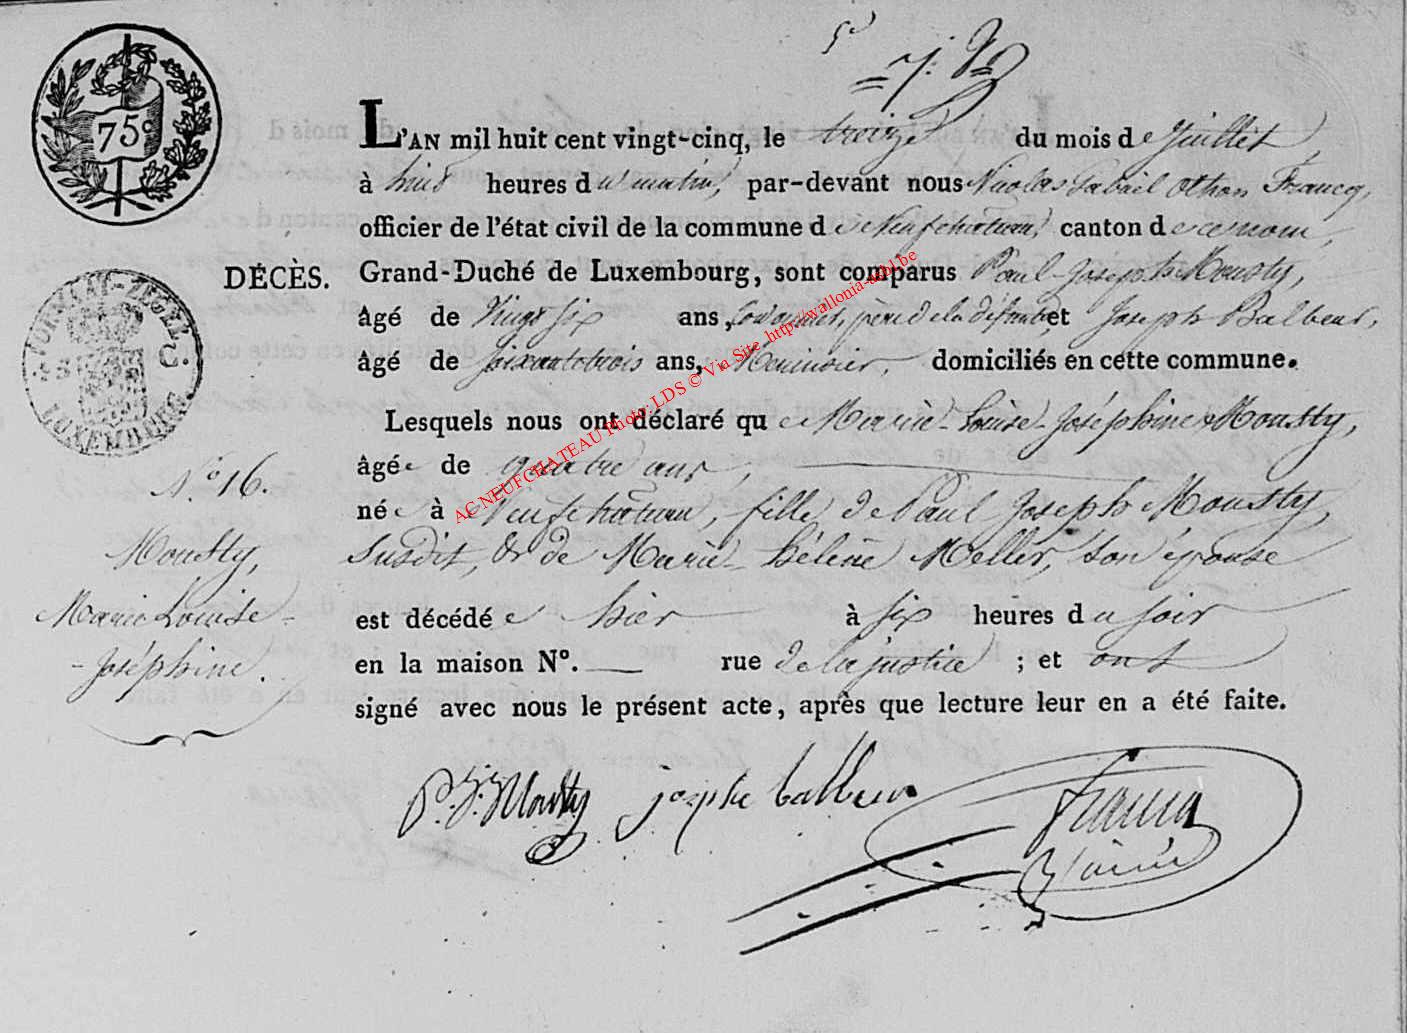 75c
L'AN mil huit cent vingt-cinq, le treize du mois de juillet,
à huit heures du matin, par-devant nous Nicolas Othon Francq,
officier de l'état civil de la commune de Neufchateau, canton de ce nom,
DÉCÈS.
Grand-Duché de Luxembourg, sont comparus Paul-Joseph Mousty,
âgé de Vingt six ans, Cordonnier, père de la défunte et Joseph Balbeur,
âgé de soixante trois ans, Menuisier, domiciliés en cette commune.
Lesquels nous ont déclaré que Marie-Louise-Joséphine Mousty,
âgée de quatre ans,
née à Neufchateau, fille de Paul Joseph Mousty,
susdit, & de Marie-Hélène Meller, son épouse
est décédée hier à six heures du soir
en la maison N°. — rue de la justice ; et ont
signé avec nous le présent acte, après que lecture leur en a été faite.
N.° 16.
Mousty,
Marie Louise-
-Joséphine.
P. J. Mousty josephe balbeur Francq
LUXEMBOURG.
AC NEUFCHATEAU Photo: LDS © Via Site http://wallonia-asbl.be